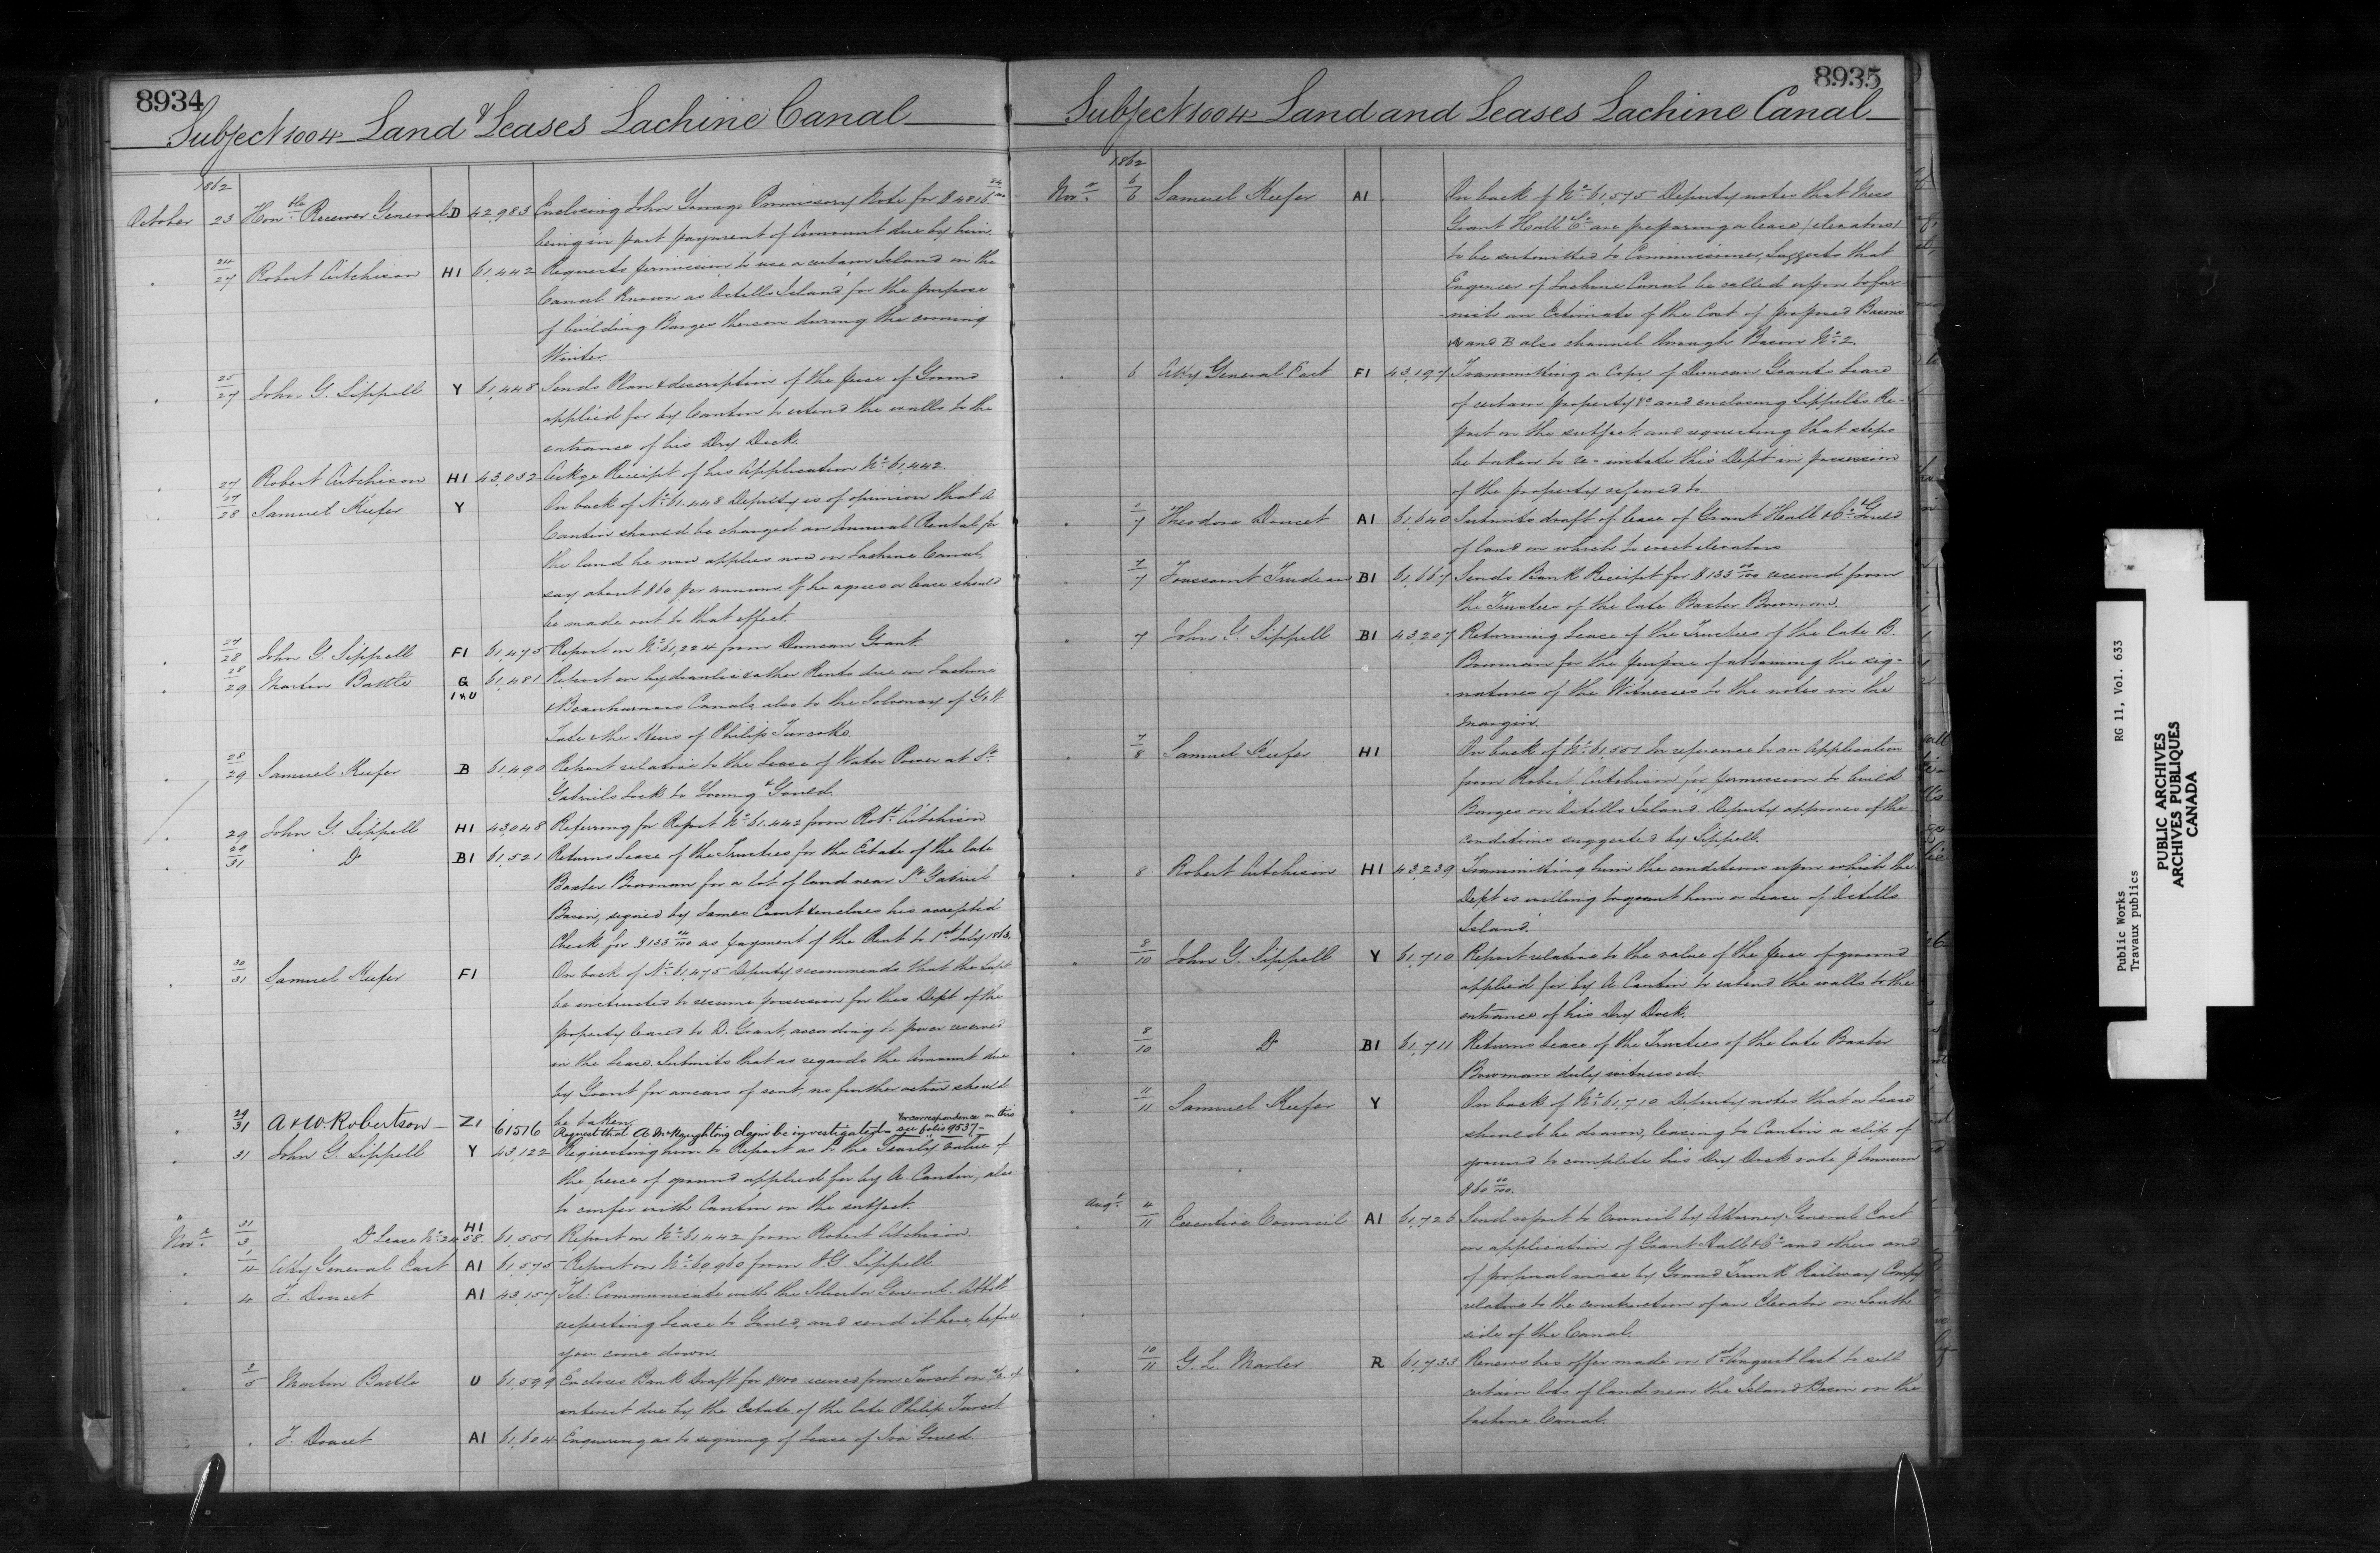 8934
Subject 1004 Land & Leases Lachine Canal
1862
October 23 Honble Receiver General D 42,983 Enclosing John Youngs Promissory Note for $4816 24/100
being in part payment of Amount due by him.
24/27 Robert Aitchison H1 61,442 Requests permission to use a certain Island on the
Canal Known as Ostells Island for the purpose
of building Barges thereon during the coming
Winter.
25/27 John G. Sippell Y 61,448 Sends Plan & description of the piece of Ground
applied for by Cantin to extend the walls to the
entrance of his Dry Dock.
27 Robert Aitchison H1 43,032 Ackge Receipt of his Application No 61,442.
27/28 Samuel Keefer Y On back of No 61,448 Deputy is of opinion that A
Cantin should be charged an Annual Rental for
the land he now applies now on Lachine Canal,
say about $60 per annum. If he agrees a lease should
be made out to that effect.
27/28 John G. Sippell F1 61,475 Report on No 61,224 from Duncan Grant.
28/29 Martin Battle G 1 & U 61,481 Report on hydraulic & other Rents due on Lachine
& Beauharnois Canals, also to the Solvency of G & W
Tate & the Heirs of Philip Turcotte
28/29 Samuel Keefer B 61,490 Report relative to the Lease of Water Power at St.
Gabriels Lock to Young & Gould.
29 John G. Sippell H1 43,048 Referring for Report No 61,442 from Robt Aitchison
29/31 Do B1 61,521 Returns Lease of the Trustees for the Estate of the late
Baxter Bowman for a lot of land near St Gabriel
Basin, signed by James Court & encloses his accepted
Check for $133 00/100 as payment of the Rent to 1st July 1863.
30/31 Samuel Keefer F1 On back of No 61,475 Deputy recommends that the Supt
be instructed to resume possession for this Dept of the
property leased to D. Grant, according to power reserved
in the Lease. Submits that as regards the Amount due
by Grant for arrears of rent, no further action should
be taken.
29/31 A & W. Robertson Z1 61516 Request that A McNaughtons claim be investigated - for correspondence on this see folio 9537-
31 John G. Sippell Y 43,122 Requesting him to Report as to the Yearly value of
the piece of ground applied for by A. Cantin, also
to confer with Cantin on the subject.
Novr 31/3 Do Lease No 2458. H1 61,551 Report on No 61,442 from Robert Aitchison
1/4 Atty General East A1 61,575 Report on No 60,960 from J G. Sippell.
4 T. Doucet A1 43,157 Tel: Communicate with the Solicitor General Abbott
respecting Lease to Gould, and send it here, before
you come down.
3/5 Martin Battle U 61,599 Encloses Bank Draft for $400 received from Turcot on a/c of
interest due by the Estate of the late Philip Turcot
T. Doucet A1 61,604 Enquiring as to signing of Lease of Ira Gould.
8935
Subject 1004 Land and Leases Lachine Canal
1862
Novr 6/6 Samuel Keefer A1 On back of No 61,575 Deputy notes that Mess
Grant Hall & Co are preparing a lease (elevators)
to be submitted to Commissioner, Suggests that
Engineer of Lachine Canal be called upon to fur-
nish an Estimate of the Cost of proposed Basins
A and B also channel through Basin No 2.
6 Atty General East F1 43,197 Transmitting a Copy of Duncan Grants Lease
of certain property &c and enclosing Sippells Re-
port on the subject and requesting that steps
be taken to re-instate this Dept in possession
of the property referred to
1/7 Theodore Doucet A1 61,640 Submits draft of lease of Grant Hall & Co & Gould
of land on which to erect elevators
7/7 Toussaint Trudeau B1 61,667 Sends Bank Receipt for $133 00/100 received from
the Trustees of the late Baxter Bowman.
7 John G. Sippell B1 43,207 Returning Lease of the Trustees of the late B.
Bowman for the purpose of obtaining the sig-
natures of the Witnesses to the notes in the
margin.
7/8 Samuel Keefer H1 On back of No 61,551 In reference to an Application
from Robert Aitchison for permission to build
Barges on Ostells Island. Deputy approves of the
conditions suggested by Sippell.
8 Robert Aitchison H1 43,239 Transmitting him the conditions upon which the
Dept is willing to grant him a Lease of Ostells
Island.
8/10 John G. Sippell Y 61,710 Report relative to the value of the piece of ground
applied for by A. Cantin to extend the walls to the
entrance of his Dry Dock.
8/10 Do B1 61,711 Returns Lease of the Trustees of the late Baxter
Bowman duly witnessed.
11/11 Samuel Keefer Y On back of No 61,710 Deputy notes that a Lease
should be drawn, leasing to Cantin a slip of
ground to complete his Dry Dock rate p Annum
$60 00/100.
Augt 4/11 Executive Council A1 61,726 Send report to Council by Attorney General East
on application of Grant Hall & Co and others and
of proposal made by Grand Trunk Railway Compy
relative to the construction of an Elevator on South
side of the Canal.
10/11 G. L. Marler R 61,733 Renews his offer made on 1st August last to sell
certain lots of land near the Island Basin on the
Lachine Canal.
Public Works RG 11, Vol. 633
Travaux publics
PUBLIC ARCHIVES
ARCHIVES PUBLIQUES
CANADA